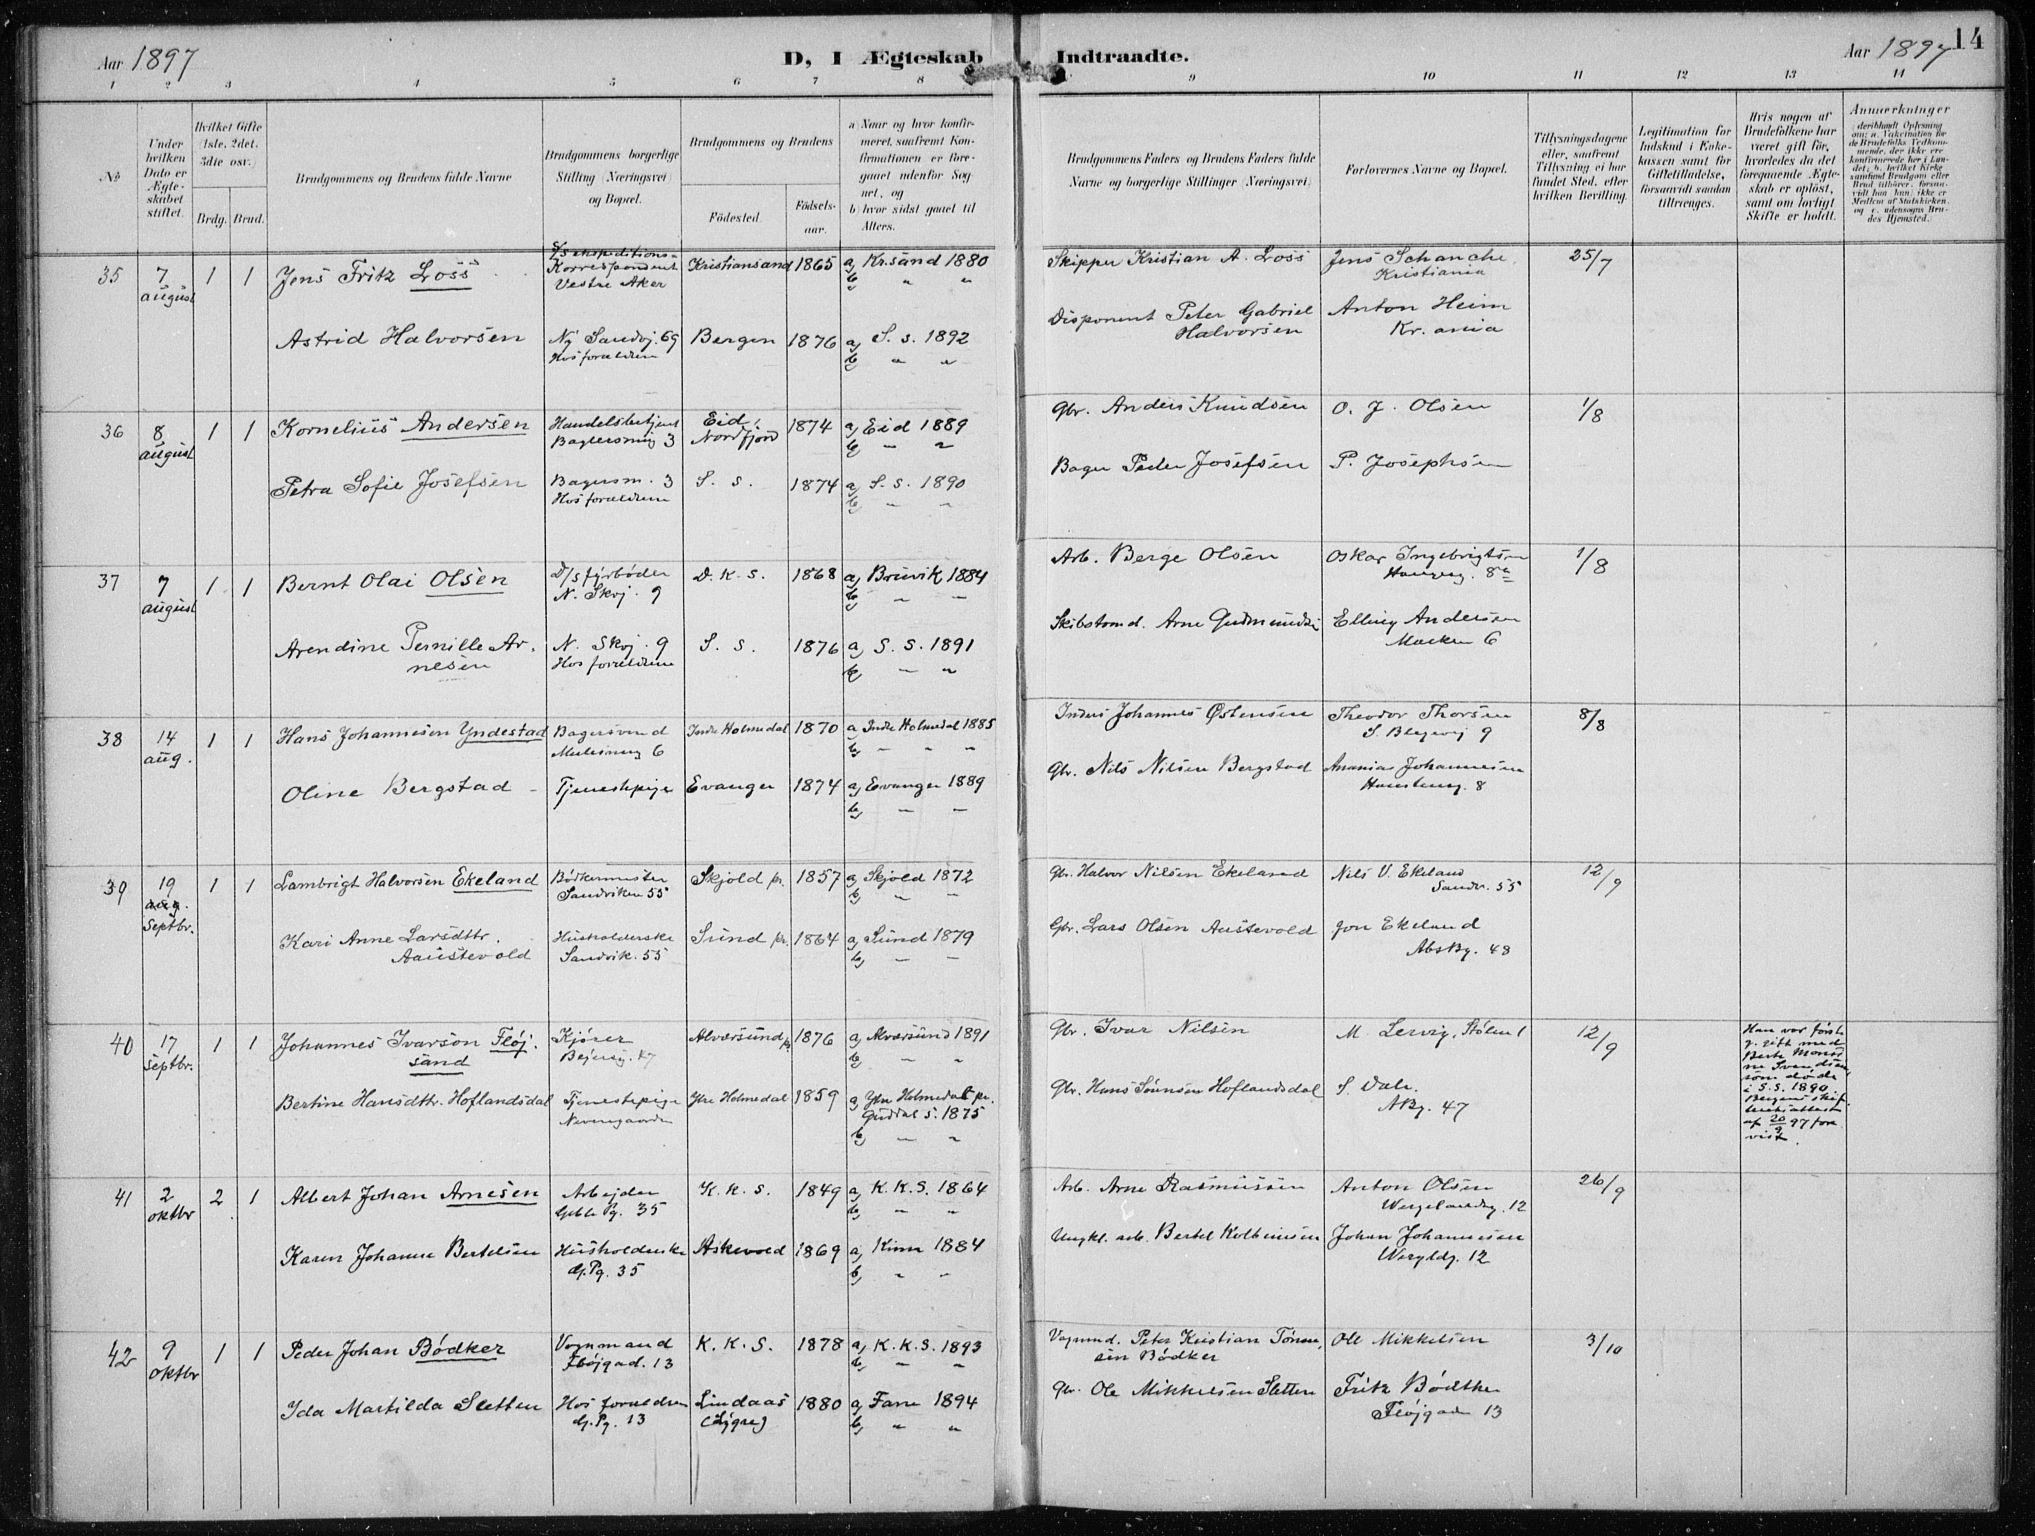 Aar 1897
D, I Ægteskab Indtraadte.
Aar 1897
14
1 2 3 4 5 6 7 8 9 10 11 12 13 14
No
Under hvilken Dato er Ægteskabet stiftet.
Hvilket Gifte (1ste, 2det, 3dte osv.)
Brdg. Brud.
Brudgommens og Brudens fulde Navne
Brudgommens borgerlige Stilling (Næringsvei) og Bopæl.
Brudgommens og Brudens
Fødested.
Fødselsaar.
a) Naar og hvor konfirmeret, saafremt Konfirmationen er foregaaet udenfor Sognet, og
b) hvor sidst gaaet til Alters.
Brudgommens Faders og Brudens Faders fulde Navne og borgerlige Stillinger (Næringsvei)
Forlovernes Navne og Bopæl.
Tillysningsdagene eller, saafremt Tillysning ei har fundet Sted, efter hvilken Bevilling.
Legitimation for Indskud i Enkekassen samt for Giftetilladelse, forsaavidt saadan tiltrænges.
Hvis nogen af Brudefolkene har været gift før, hvorledes da det foregaaende Ægteskab er opløst, samt om lovligt Skifte er holdt.
Anmærkninger
35 7 august 1 1 Jens Fritz Loss
Korrespondent Vestre Aker
Kristiansand 1865 a) Kr.sand 1880
b) " "
Skipper Kristian A. Loss
Jens Schanche Kristiania
25/7
Astrid Halvorsen
Ny Sandvj. 69 Hos forældrene
Bergen 1876 a) S. s. 1892
b) " "
Disponent Peter Gabriel Halvorsen
Anton Heim Kr.ania
36 8 august 1 1 Kornelius Andersen
Handelsbetjent 3
Eid, Nordfjord 1874 a) Eid 1889
b) " "
Gbr. Anders Knudsen
O. J. Olsen
1/8
Petra Sofie Josefsen
Bagersm. 3 Hos forældrene
S. s. 1874 a) S. s. 1890
b) " "
Bager Peder Josefsen
P. Josephsen
37 7 august 1 1 Bernt Olai Olsen
D/s fyrbøder N. Skvj. 9
D. K. S. 1868 a) Bruvik 1884
b) " "
Arb. Berge Olsen
Oskar Ingebrigtsen
1/8
Arendine Pernille Arnesen
N. Skvj. 9 Hos forældrene
S. S. 1876 a) S. S. 1891
b) " "
Skibstømd. Arne Gudmundsen
Elling Andersen Marken 6
38 14 aug. 1 1 Hans Johannesen Yndestad
Bagersvend 6
Indre Holmedal 1870 a) Indre Holmedal 1885
b) " " "
Inders Johannes Østensen
Theodor Thorsen S. Blegevej 9
8/8
Oline Bergstad
Tjenestepige
Evanger 1874 a) Evanger 1889
b) " "
Gbr. Nils Nilsen Bergstad
Anania Johannesen
39 19 aug. Septbr. 1 1 Lambrigt Halvorsen Ekeland
Bødkermester Sandviken 55
Skjold pr. 1857 a) Skjold 1872
b) " "
Gbr. Halvor Nilsen Ekeland
Nils V. Ekeland Sandv. 55
12/9
Kari Anne Larsdttr. Aaustevold
Husholderske Sandvik. 55
Sund pr. 1864 a) Sund 1879
b) " "
Gbr. Lars Olsen Austevold
Jon Ekeland 48
40 17 Septbr. 1 1 Johannes Ivarson Fløjsand
Kjører
Alversund pr. 1876 a) Alversund 1891
b) " "
Gbr. Ivar Nilsen
M. Lervig, Stølen 1
12/9
Han var først g. gift med som døde i S.S. 1890. Bergens skifteretsattest af 20/9 97 forevist.
Bertine Hansdtr. Hoflandsdal
Tjenestepige
Ytre Holmedal 1859 a) Ytre Holmedal pr. Guddal S. 1875
b) " "
Gbr. Hans Hoflandsdal
S. Dale NBg. 47
41 2 oktbr 2 1 Albert Johan Arnesen
Arbejder Pg. 35
K. K. S. 1849 a) K. K. S. 1864
b) " "
Arb. Arne Rasmussen
Anton Olsen Wergelandsg. 12
26/9
Karen Johanne Bertelsen
Husholderske Pg. 35
Askevold 1869 a) Kinn 1884
b) " "
arb. Bertel Kolbeinsen
Johan Johannesen Wergldg. 12
42 9 oktbr 1 1 Peder Johan Bødker
Vognmand Fløjgad. 13
K. K. S. 1878 a) K. K. S. 1893
b) " "
Vognmd. Peter Kristian Tønnesen Bødker
Ole Mikkelsen
3/10
Ida Martilda Sletten
Hos forældren 13
Lindaas 1880 a) Fane 1894
b) " "
Gbr. Ole Mikkelsen Sletten
Fritz Bødtker Fløjgaden 13